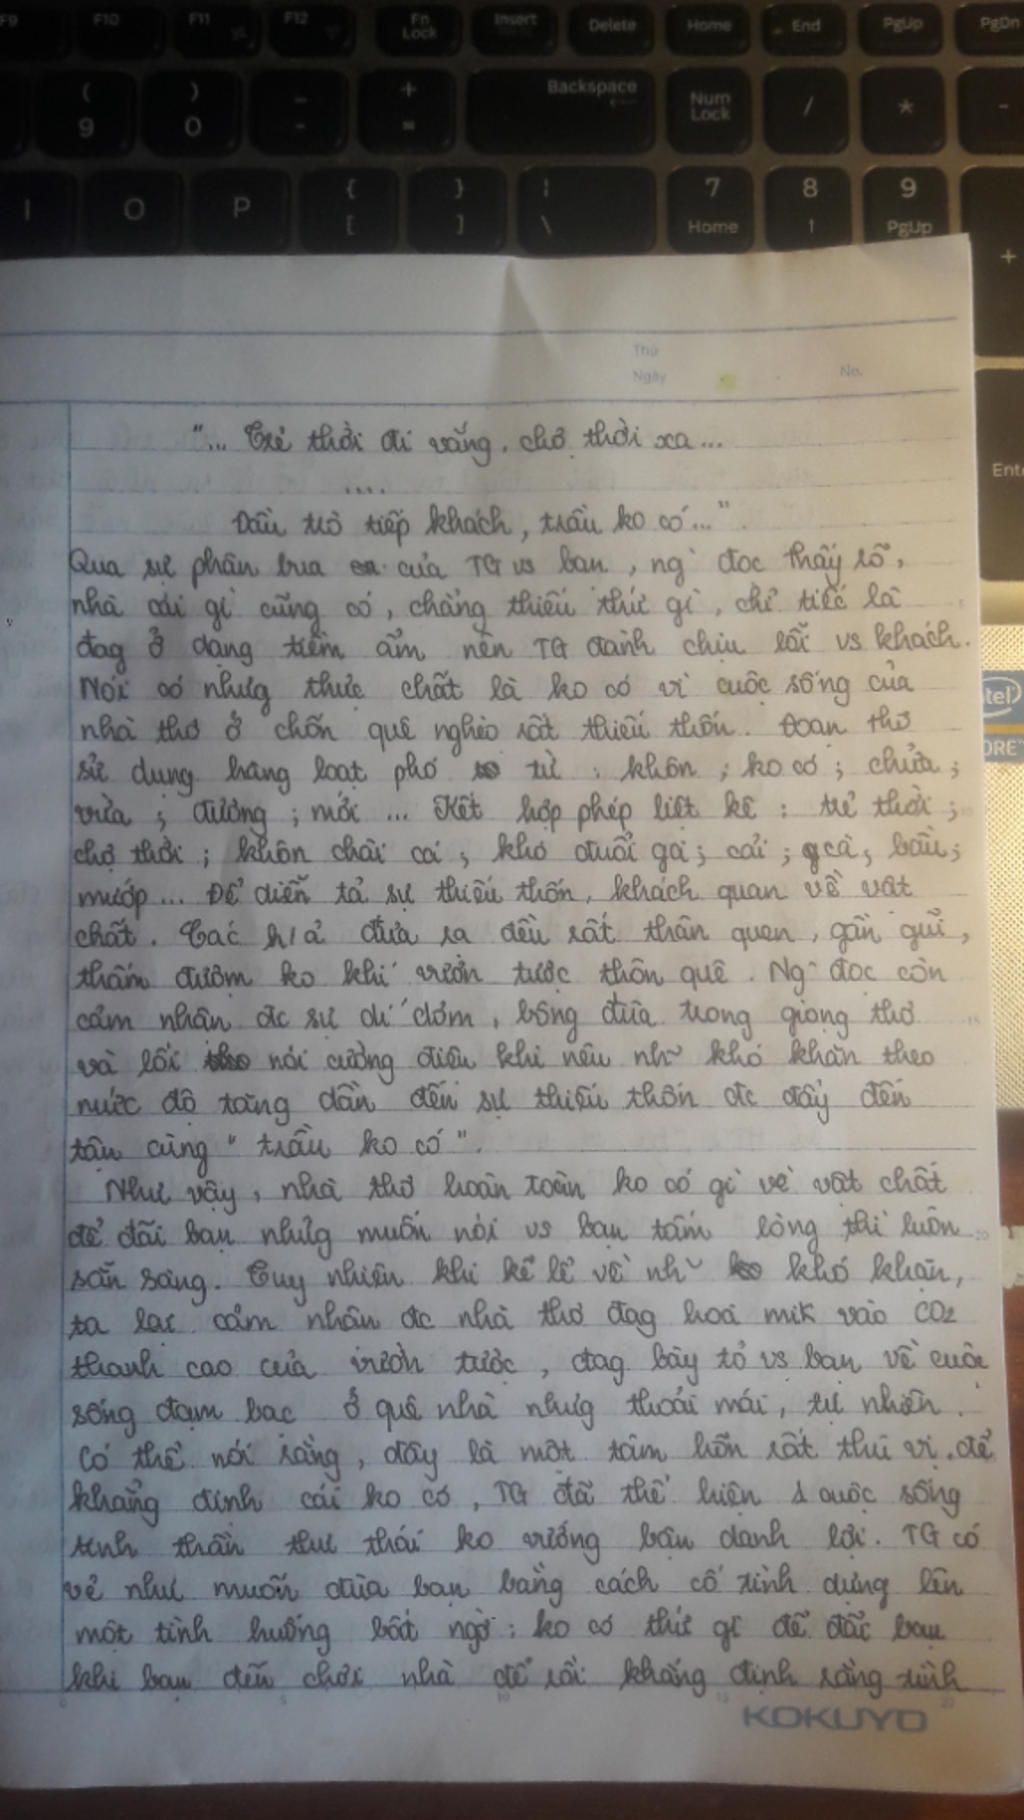 F9 F10 F11 F12 Fn Lock Insert Delete Home End PgUp PgDn
( 9 ) 0 _ - + = Backspace Num Lock / * -
I O P { [ } ] | \ 7 Home 8 ↑ 9 PgUp +
Enter
intel
CORE
Thứ
Ngày No.
"... Trẻ thời đi vắng, chợ thời xa...
....
Đầu trò tiếp khách, trầu ko có..."
Qua sự phân bua của TG vs bạn, ng` đọc thấy rõ,
nhà cái gì cũng có, chẳng thiếu thứ gì, chỉ tiếc là
đag ở dạng tiềm ẩn nên TG đành chịu lỗi vs khách.
Nói có nhưg thực chất là ko có vì cuộc sống của
nhà thơ ở chốn quê nghèo rất thiếu thốn. Đoạn thơ
sử dụng hàng loạt phó từ: khôn; ko có; chửa;
vừa; đương; mới... Kết hợp phép liệt kê: trẻ thời;
chợ thời; khôn chài cá; khó đuổi gà; cải; cà; bầu;
mướp... Để diễn tả sự thiếu thốn, khách quan về vật
chất. Các h/ả đưa ra đều rất thân quen, gần gũi,
thấm đượm ko khí vườn tược thôn quê. Ng` đọc còn
cảm nhận đc sự dí dỏm, bông đùa trong giọng thơ
và lối nói cường điệu khi nêu nh~ khó khăn theo
mức độ tăng dần đến sự thiếu thốn đc đẩy đến
tận cùng "trầu ko có".
Như vậy, nhà thơ hoàn toàn ko có gì về vật chất
để đãi bạn nhưg muốn nói vs bạn tấm lòng thì luôn
sẵn sàng. Tuy nhiên khi kể lể về nh~ khó khăn,
ta lại cảm nhận đc nhà thơ đag hoà mik vào
thanh cao của vườn tược, đag bày tỏ vs bạn về cuộc
sống đạm bạc ở quê nhà nhưg thoải mái, tự nhiên.
Có thể nói rằng, đây là một tâm hồn rất thú vị. để
khẳng định cái ko có, TG đã thể hiện 1 cuộc sống
tinh thần thư thái ko vướng bận danh lợi. TG có
vẻ như muốn đùa bạn bằng cách cố tình dựng lên
một tình huống bất ngờ: ko có thứ gì để đãi bạn
khi bạn đến chơi nhà để rồi khẳng định rằng tình
0 5 10 15 20
KOKUYO